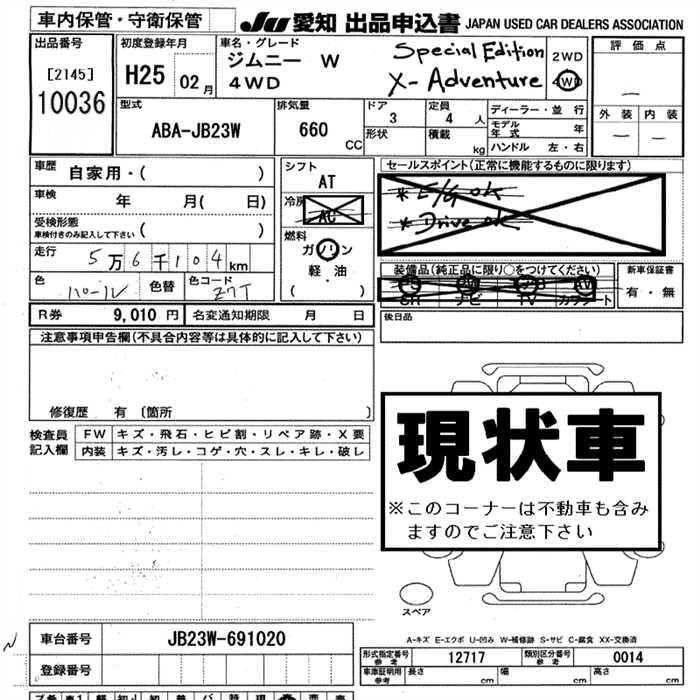 車内保管・守衛保管
JU 愛知 出品申込書 JAPAN USED CAR DEALERS ASSOCIATION
出品番号
[2145]
10036
初度登録年月
H25 02 月
車名・グレード
ジムニー W
4WD
Special Edition
X-Adventure
2WD
4WD
評価点
—
外装 内装
— —
型式
ABA-JB23W
排気量
660 CC
ドア
3
形状
定員
4 人
積載
kg
ディーラー・並行
モデル年式 年
ハンドル 左・右
車歴 自家用・( )
車検 年 月( 日)
受検形態
車検付きのみ記入して下さい ( )
走行 5万6千104 km
色 パール 色替 色コード Z7T
シフト
AT
冷房
AC
燃料
ガソリン
軽・油
・
( )
セールスポイント(正常に機能するものに限ります)
* E/G OK
* Drive OK
装備品(純正品に限り○をつけてください)
PS PW AB AW
SR ナビ TV カワシート
新車保証書
有・無
R券 9,010 円 名変通知期限 月 日
後日品
注意事項申告欄(不具合内容等は具体的に記入して下さい)
修復歴 有 [箇所 ]
検査員記入欄
FW キズ・飛石・ヒビ割・リペア跡・X要
内装 キズ・汚レ・コゲ・穴・スレ・キレ・破レ
現状車
※このコーナーは不動車も含み
ますのでご注意下さい
スペア
A-キズ E-エクボ U-凹み W-補修跡 S-サビ C-腐食 XX-交換済
車台番号 JB23W-691020
登録番号
形式指定番号 参考 12717 類別区分番号 参考 0014
車庫証明用 参考 長さ cm 幅 cm 高さ cm